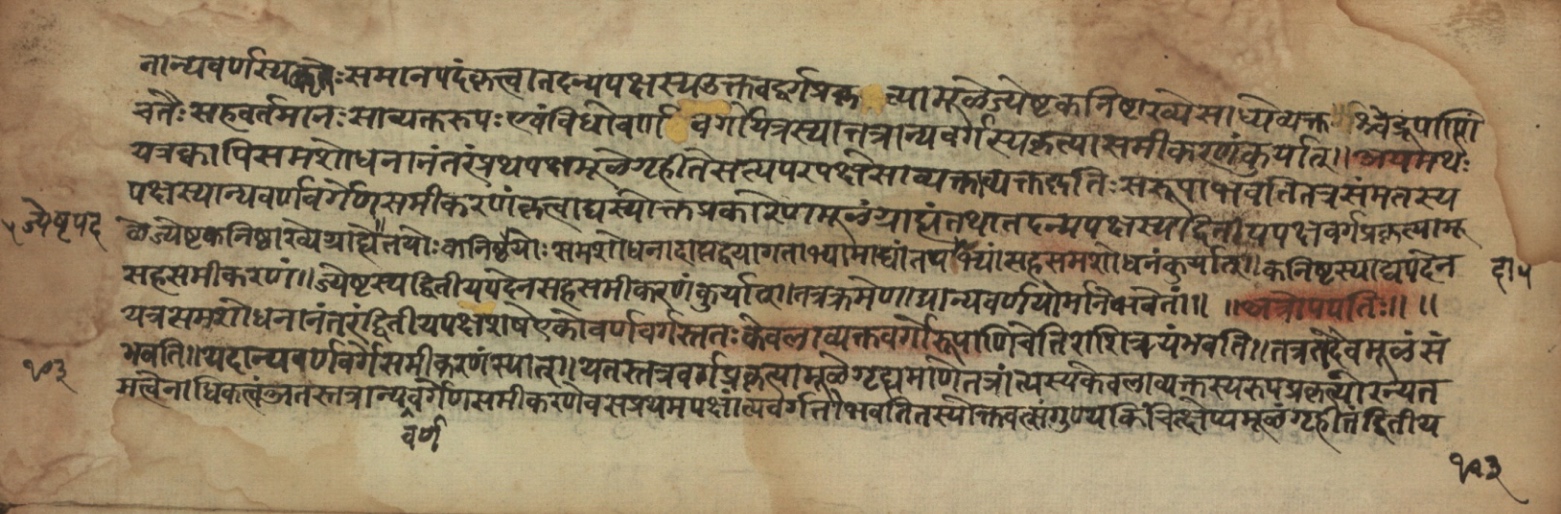 नान्यवर्णस्यकृतेःसमानपदंकृत्वातदन्यपक्षस्यउक्तवद्वर्गप्रकृत्यामूळेज्येष्टकनिष्टाख्येसाध्येव्यक्तश्चेद्रूपाणि
चतैःसहवर्तमानःसाव्यक्तरूपःएवंविधोवर्णवर्गोयत्रस्यात्तत्रान्यवर्णस्यकृत्यासमीकरणंकुर्यात्॥अयमर्थः
यत्रक्वापिसमशोधनानंतरंप्रथपक्षमूळेगृहीतेसत्यपरपक्षेसाव्यक्ताव्यक्तकृतिःसरूपाभवतितत्रसंमतस्य
पक्षस्यान्यवर्णवर्गेणसमीकरणंकृत्वाद्यस्योक्तप्रकारेणमूळंग्राह्यंतथातदन्यपक्षस्यद्वितीयपक्षवर्गप्रकृत्यामू
ळेज्येष्टकनिष्ठाख्येग्राह्येतयोःकनिष्ठयोःसमशोधनादाप्तद्वयागताभ्यामाद्यांतपक्षाभ्यांसहसमशोधनंकुर्यात्॥कनिष्टस्याद्यपदेन
ज्येष्टपद
सहसमीकरणं॥ज्येष्टस्यद्वितीयपदेनसहसमीकरणंकुर्यात्॥तत्रक्रमेणाद्यान्यवर्णयोर्मानेभवेतां॥ ॥अत्रोपपतिः॥ ॥
यत्रसमशोधनानंतरंद्वितीयपक्षशेषेएकोवर्णवर्गस्ततःकेवलाव्यक्तवर्गोरूपाणिचेतिराशित्रयंभवति॥तत्रतदैवमूळंसं
भवति॥यदान्यवर्णवर्गसमीकरणंस्यात्॥यतस्तत्रवर्गप्रकृत्यामूळेगृह्यमाणेतत्रांत्यस्यकेवलाव्यक्तस्यरूपप्रकृत्योरन्यत
मत्वेनाधिकत्वंअतस्तत्रान्यवर्गेणसमीकरणेवसप्रथमपक्षांत्यवर्गतोभवतितस्योक्तवत्संगुण्यकिंचित्क्षेप्यमूळंगृहीतंद्वितीय
वर्ण
१०३
१०३